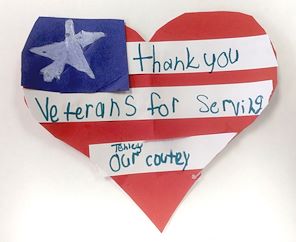 thank you
Veterans for Serving
our coutey